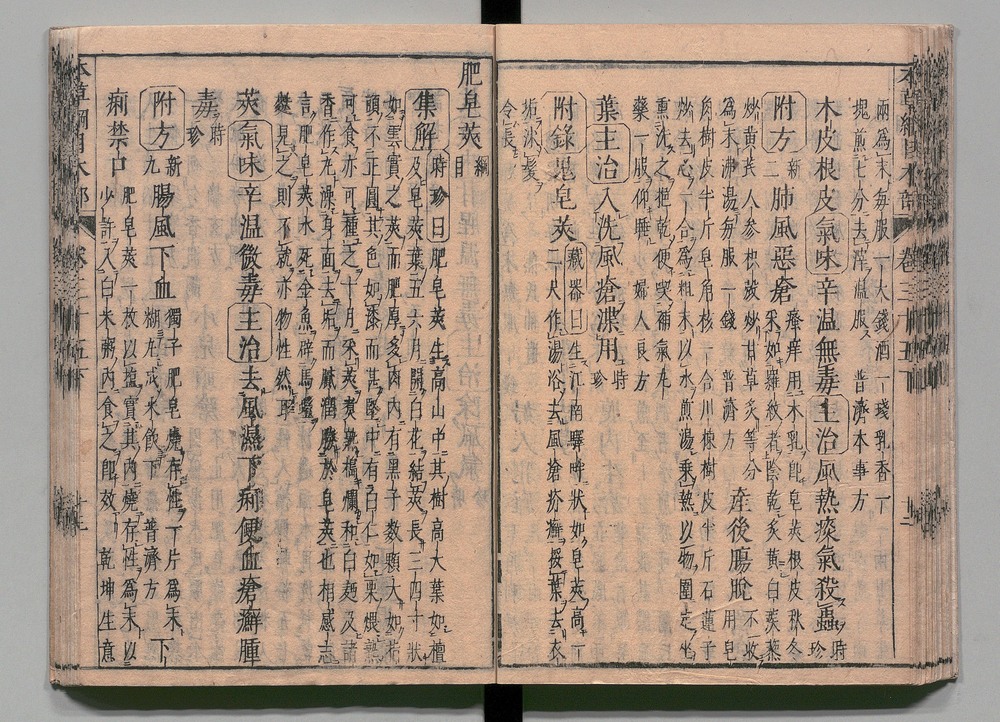 兩爲末每服一大錢酒一琖乳香一
塊煎七分去滓溫服 普濟本事方
木皮根皮氣味辛温無毒主治風熱痰氣殺蟲時珍
附方新二肺風惡瘡瘙痒用木乳卽皂莢根皮秋冬
采如羅紋者陰乾炙黃白蒺藜
炒黃芪人參枳殼炒甘草炙等分
爲末沸湯每服一錢 普濟方 産後腸脫不收用皂
角樹皮半斤皂角核一合川楝樹皮半斤石蓮子
炒去心一合爲粗末以水煎湯乘熱以物圍定坐
熏洗之挹乾便喫補氣丸
藥一服仰睡 婦人良方
葉主治入洗風瘡渫用時珍
附錄鬼皂莢藏器曰生江南澤畔狀如皂莢高一
二尺作湯浴去風瘡疥癬挼葉去衣
垢沐髮
令長
肥皂莢綱目
集解時珍曰肥皂莢生高山中其樹高大葉如檀
及皂莢葉五六月開白花結莢長三四寸狀
如雲實之莢而肥厚多肉內有黑子數顆大如指
頭不正圓其色如漆而甚堅中有白仁如栗煨熟
可食亦可種之十月采莢煮熟搗爛和白麪及諸
香作丸澡身面去垢而膩潤勝於皂莢也相感志
言肥皂莢水死金魚辟馬蟻
麩見之則不就亦物性然耳
莢氣味辛温微毒主治去風濕下痢便血瘡癬腫
毒時珍
附方新九腸風下血獨子肥皂燒存性一片爲末
糊丸成米飲下 普濟方 下
痢禁口肥皂莢一枚以鹽實其內燒存性爲末以
少許入白米粥內食之卽效 乾坤生意